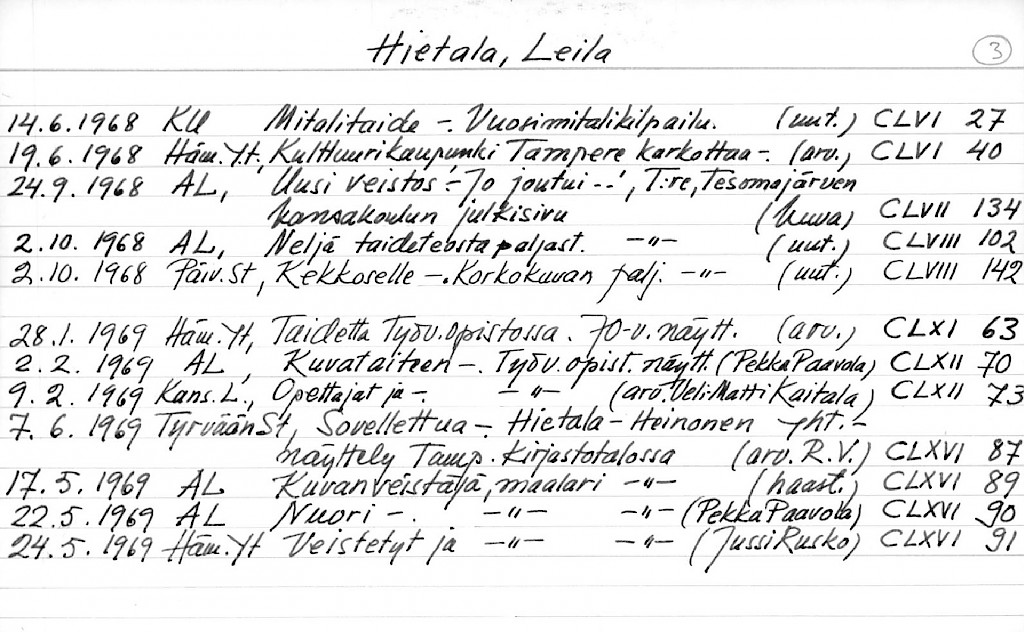 Hietala, Leila 3
14.6.1968 KU Mitalitaide -. Vuosimitalikilpailu. (uut.) CLVI 27
19.6.1968 Häm.Yt, Kulttuurikaupunki Tampere karkottaa -. (arv.) CLVI 40
24.9.1968 AL, Uusi veistos'- Jo joutui --', T:re, Tesomajärven
kansakoulun julkisivu (kuva) CLVII 134
2.10.1968 AL, Neljä taideteosta paljast. -"- (uut.) CLVIII 102
2.10.1968 Päiv.St, Kekkoselle -. Korkokuvan palj. -"- (uut.) CLVIII 142
28.1.1969 Häm.Yt, Taidetta Työv.opistossa. 70-v.näytt. (arv.) CLXI 63
2.2.1969 AL, Kuvataiteen -. Työv.opist.näytt. (Pekka Paavola) CLXII 70
9.2.1969 Kans.L., Opettajat ja -. -"- (arv. Veli-Matti Kaitala) CLXII 73
7.6.1969 TyrväänSt, Sovellettua -. Hietala - Heinonen yht.-
näyttely Tamp. kirjastotalossa (arv. R.V.) CLXVI 87
17.5.1969 AL Kuvanveistäjä, maalari -"- (haast.) CLXVI 89
22.5.1969 AL Nuori -. -"- -"- (Pekka Paavola) CLXVI 90
24.5.1969 Häm.Yt Veistetyt ja -"- -"- (Jussi Rusko) CLXVI 91